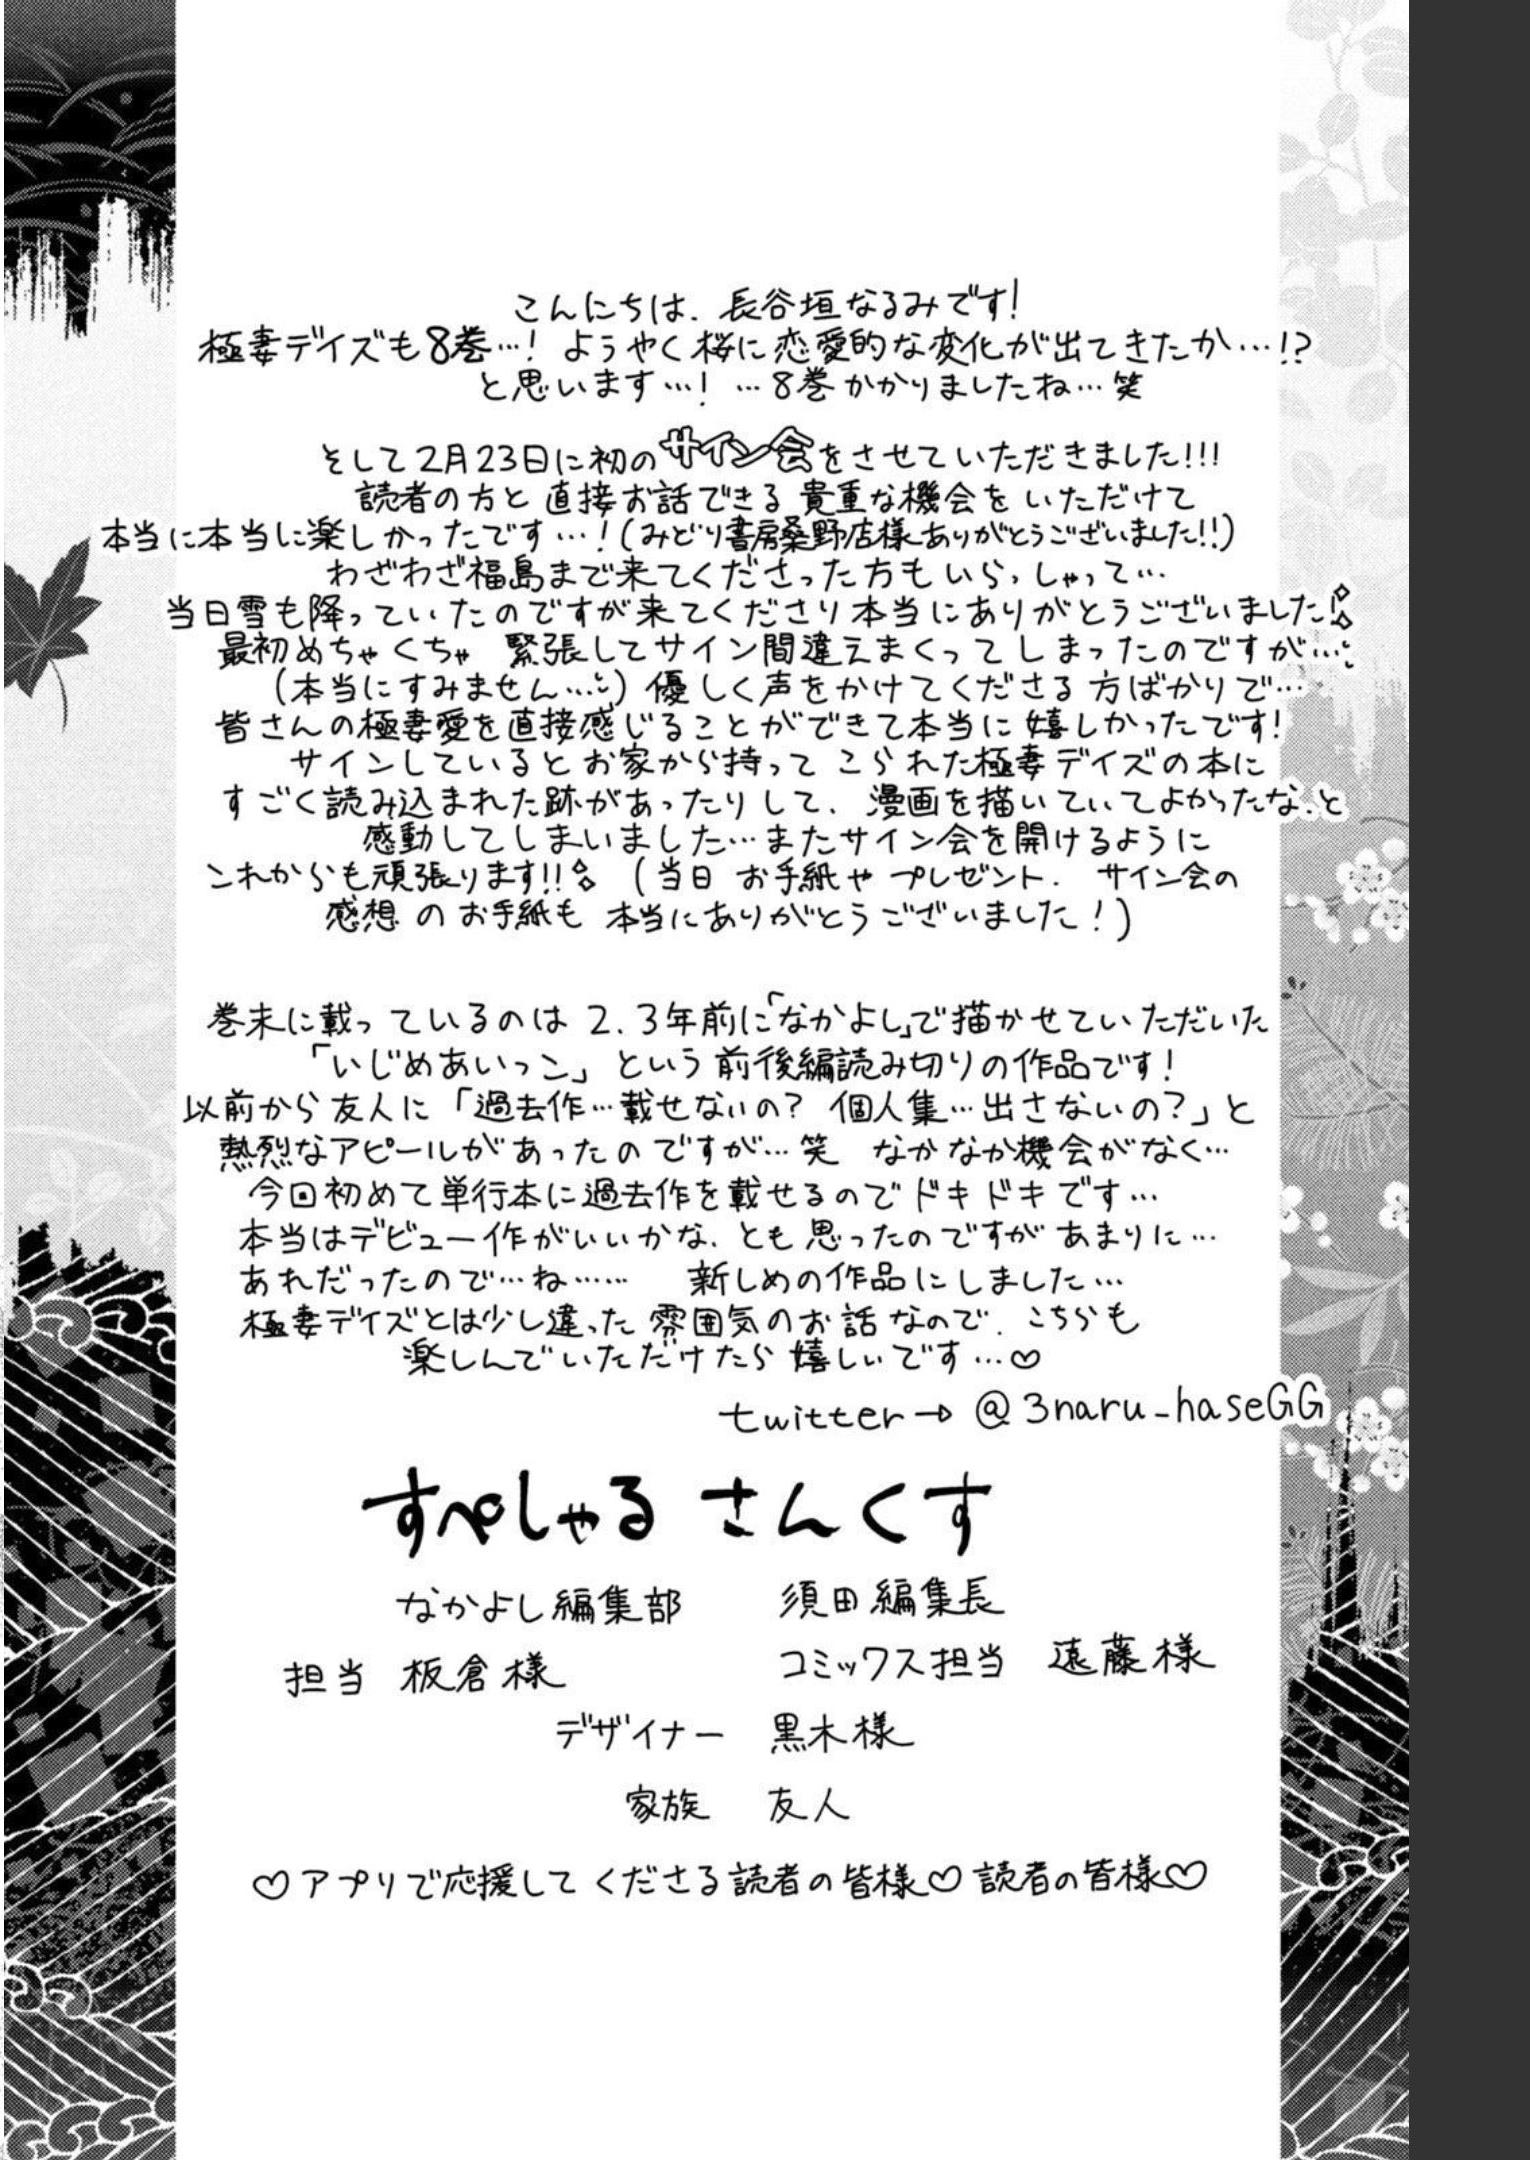 こんにちは、長谷垣なるみです!
極妻デイズも8巻…! ようやく桜に恋愛的な変化が出てきたか…!?
と思います…! …8巻かかりましたね…笑
そして2月23日に初のサイン会をさせていただきました!!!
読者の方と直接お話できる貴重な機会をいただけて
本当に本当に楽しかったです…!(みどり書房桑野店様ありがとうございました!!)
わざわざ福島まで来てくださった方もいらっしゃって…
当日雪も降っていたのですが来てくださり本当にありがとうございました!
最初めちゃくちゃ 緊張してサイン間違えまくってしまったのですが…
(本当にすみません…)優しく声をかけてくださる方ばかりで…
皆さんの極妻愛を直接感じることができて本当に嬉しかったです!
サインしているとお家から持ってこられた極妻デイズの本に
すごく読み込まれた跡があったりして、漫画を描いていてよかったな、と
感動してしまいました…またサイン会を開けるように
これからも頑張ります!! (当日 お手紙や プレゼント、 サイン会の
感想のお手紙も 本当にありがとうございました!)
巻末に載っているのは2、3年前に「なかよし」で描かせていただいた
「いじめあいっこ」という前後編読み切りの作品です!
以前から友人に「過去作…載せないの? 個人集…出さないの?」と
熱烈なアピールがあったのですが…笑 なかなか機会がなく…
今回初めて単行本に過去作を載せるのでドキドキです…
本当はデビュー作がいいかな、とも思ったのですがあまりに…
あれだったので…ね…… 新しめの作品にしました…
極妻デイズとは少し違った雰囲気のお話なので、こちらも
楽しんでいただけたら嬉しいです…♡
twitter→ @3naru_haseGG
すぺしゃる さんくす
なかよし編集部 須田編集長
担当 板倉様 コミックス担当 遠藤様
デザイナー 黒木様
家族 友人
♡アプリで応援してくださる読者の皆様♡読者の皆様♡